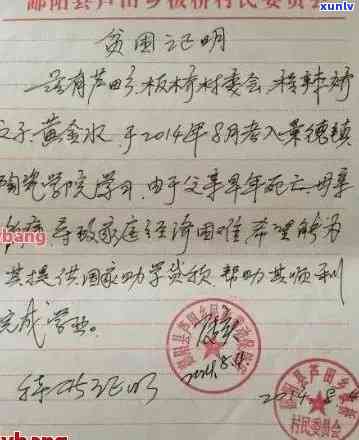 xunlv
鄱阳县芦田乡板桥村民委员会
贫困证明
兹有芦田乡板桥村委会
之子黄金水,于2014年8月考入景德镇
陶瓷学院学习,由于父亲早年死亡,母亲
ybang 导致家庭经济困难,希望能为
其提供国家助学贷款,帮助其顺利
完成学业。
2014.8.4
特此证明
2014.8.4
鄱阳县芦田乡
村民委员会
ybang